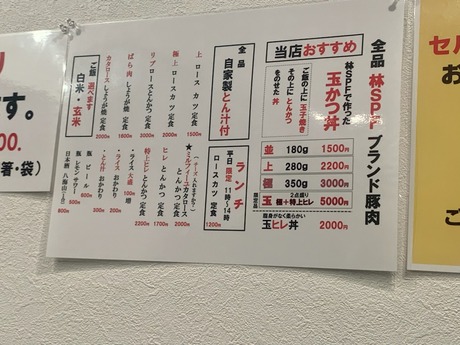 全品 林SPF ブランド豚肉
当店おすすめ
林SPFで作った
玉かつ丼
ご飯の上に玉子焼き
その上にとんかつ
をのせた丼
並 180g 1500円
上 280g 2200円
極 350g 3000円
限定版
2点盛り
玉 極+特上ヒレ 5000円
脂身がなく柔らかい
玉ヒレ丼 2000円
全品 自家製とん汁付
上 ロース カツ 定食 1500円
極上 ロースカツ 定食 2000円
リブロースとんかつ 定食
ばら肉 しょうが焼 定食 1600円
カタロース しょうが焼 定食 2000円
ご飯 選べます
白米・玄米
ランチ
平日限定 11時~14時
ロースカツ 定食 1200円
(チーズ入れますか?)
★ミルフィーユカタロース
とんかつ 定食 2000円
ヒレ とんかつ 定食 1700円
特上ヒレ とんかつ 定食 2200円
・ライス大盛 100円 増
・ライスおかわり
・とん汁 おかわり 300円
瓶 ビール
瓶 レモンサワー
日本酒 八海山 800円
り
す。
00.
箸・袋)
セル
お
ご